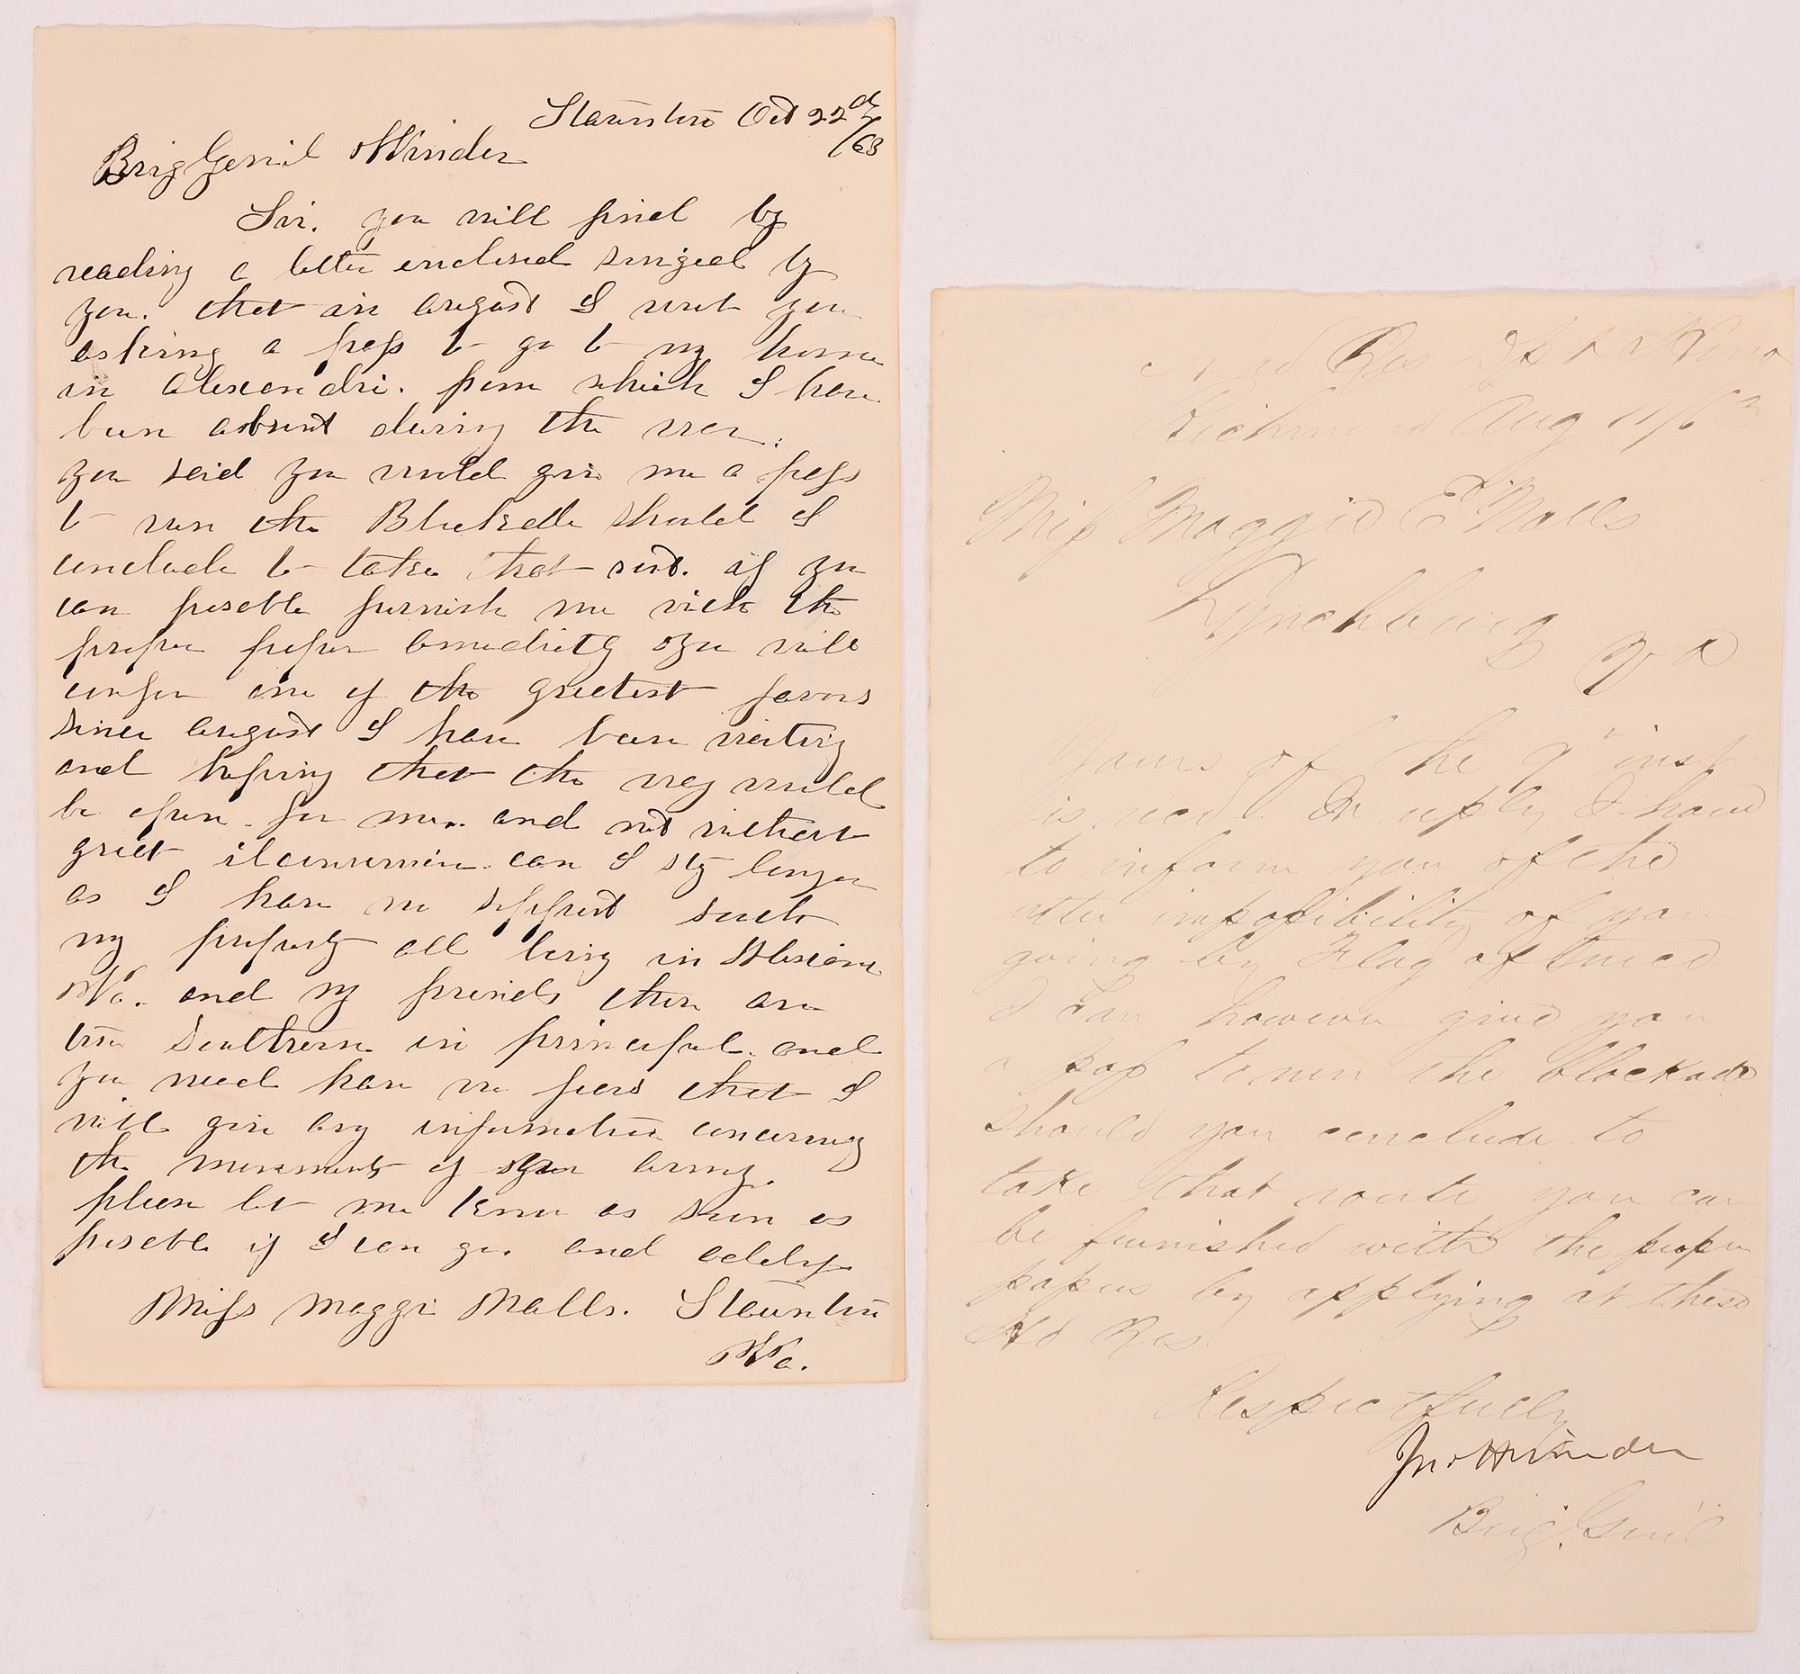 Staunton Oct 22d/63
Brig Genril Winder
Sir. you will find by
reading a letter enclosed singed by
you. that in august I writ you
asking a pass to go to my home
in Alexandri. from which I have
been absent during the war.
you said you would give me a pass
to run the Blockade should I
conclude to take that rout. if you
can poseble furnish me with the
proper papers amediatly you will
confer one of the greetest favors
since august I have been waiting
and hoping that the way would
be open for me. and not without
great can I sty longer
as I have no support South
my property all being in Alexian
Va. and my friends ther are
true Southern in principul. and
you need have no fears that I
will give any information concerning
the movements of your army.
please let me know as soon as
poseble if I can go. and
Miss Maggi Nalls. Staunton
Va.
Head Qrs Dpt
Richmond Aug 11/63
Miss Maggie E Nalls
Lynchburg
Va
Yours of the 9" inst
is recd. In reply I have
to inform you of the
utter impossibility of you
going by Flag of truce
I can however give you
a pass to run the blockade
should you conclude to
take that route you can
be furnished with the proper
papers by applying at these
Hd Qrs
Respectfully
Jno H Winder
Brig. Genl